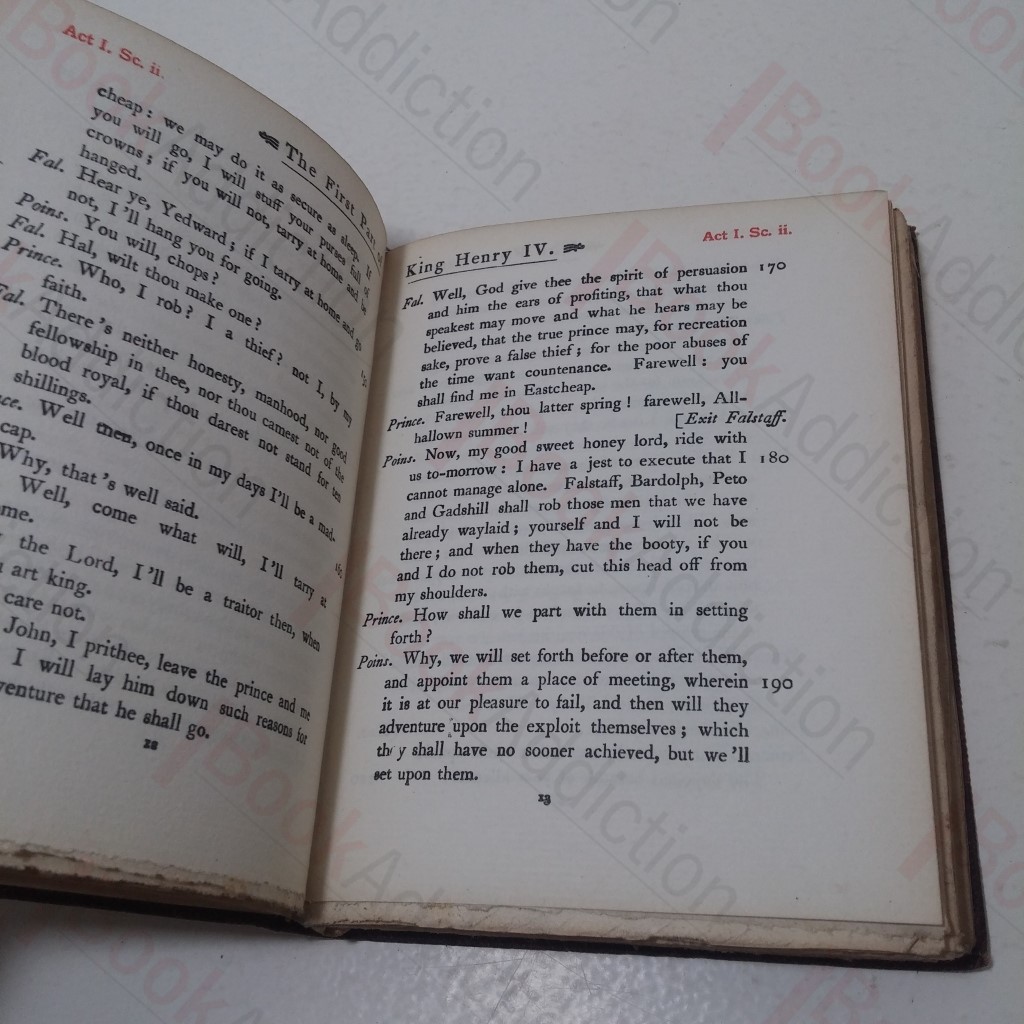 Act I. Sc. ii.
The First Part of
cheap: we may do it as secure as sleep. If
you will go, I will stuff your purses full of
crowns; if you will not, tarry at home and be
hanged.
Fal. Hear ye, Yedward; if I tarry at home and go
not, I'll hang you for going.
Poins. You will, chops?
Fal. Hal, wilt thou make one?
Prince. Who, I rob? I a thief? not I, by my
faith.
Fal. There's neither honesty, manhood, nor good
fellowship in thee, nor thou camest not of the
blood royal, if thou darest not stand for ten
shillings.
nce. Well then, once in my days I'll be a mad-
cap.
Why, that's well said.
Well, come what will, I'll tarry at
ome.
the Lord, I'll be a traitor then, when
art king.
care not.
John, I prithee, leave the prince and me
I will lay him down such reasons for
venture that he shall go.
12
King Henry IV.
Act I. Sc. ii.
Fal. Well, God give thee the spirit of persuasion 170
and him the ears of profiting, that what thou
speakest may move and what he hears may be
believed, that the true prince may, for recreation
sake, prove a false thief; for the poor abuses of
the time want countenance. Farewell: you
shall find me in Eastcheap.
Prince. Farewell, thou latter spring! farewell, All-
hallown summer! [Exit Falstaff.
Poins. Now, my good sweet honey lord, ride with
us to-morrow: I have a jest to execute that I 180
cannot manage alone. Falstaff, Bardolph, Peto
and Gadshill shall rob those men that we have
already waylaid; yourself and I will not be
there; and when they have the booty, if you
and I do not rob them, cut this head off from
my shoulders.
Prince. How shall we part with them in setting
forth?
Poins. Why, we will set forth before or after them,
and appoint them a place of meeting, wherein 190
it is at our pleasure to fail, and then will they
adventure upon the exploit themselves; which
they shall have no sooner achieved, but we'll
set upon them.
13